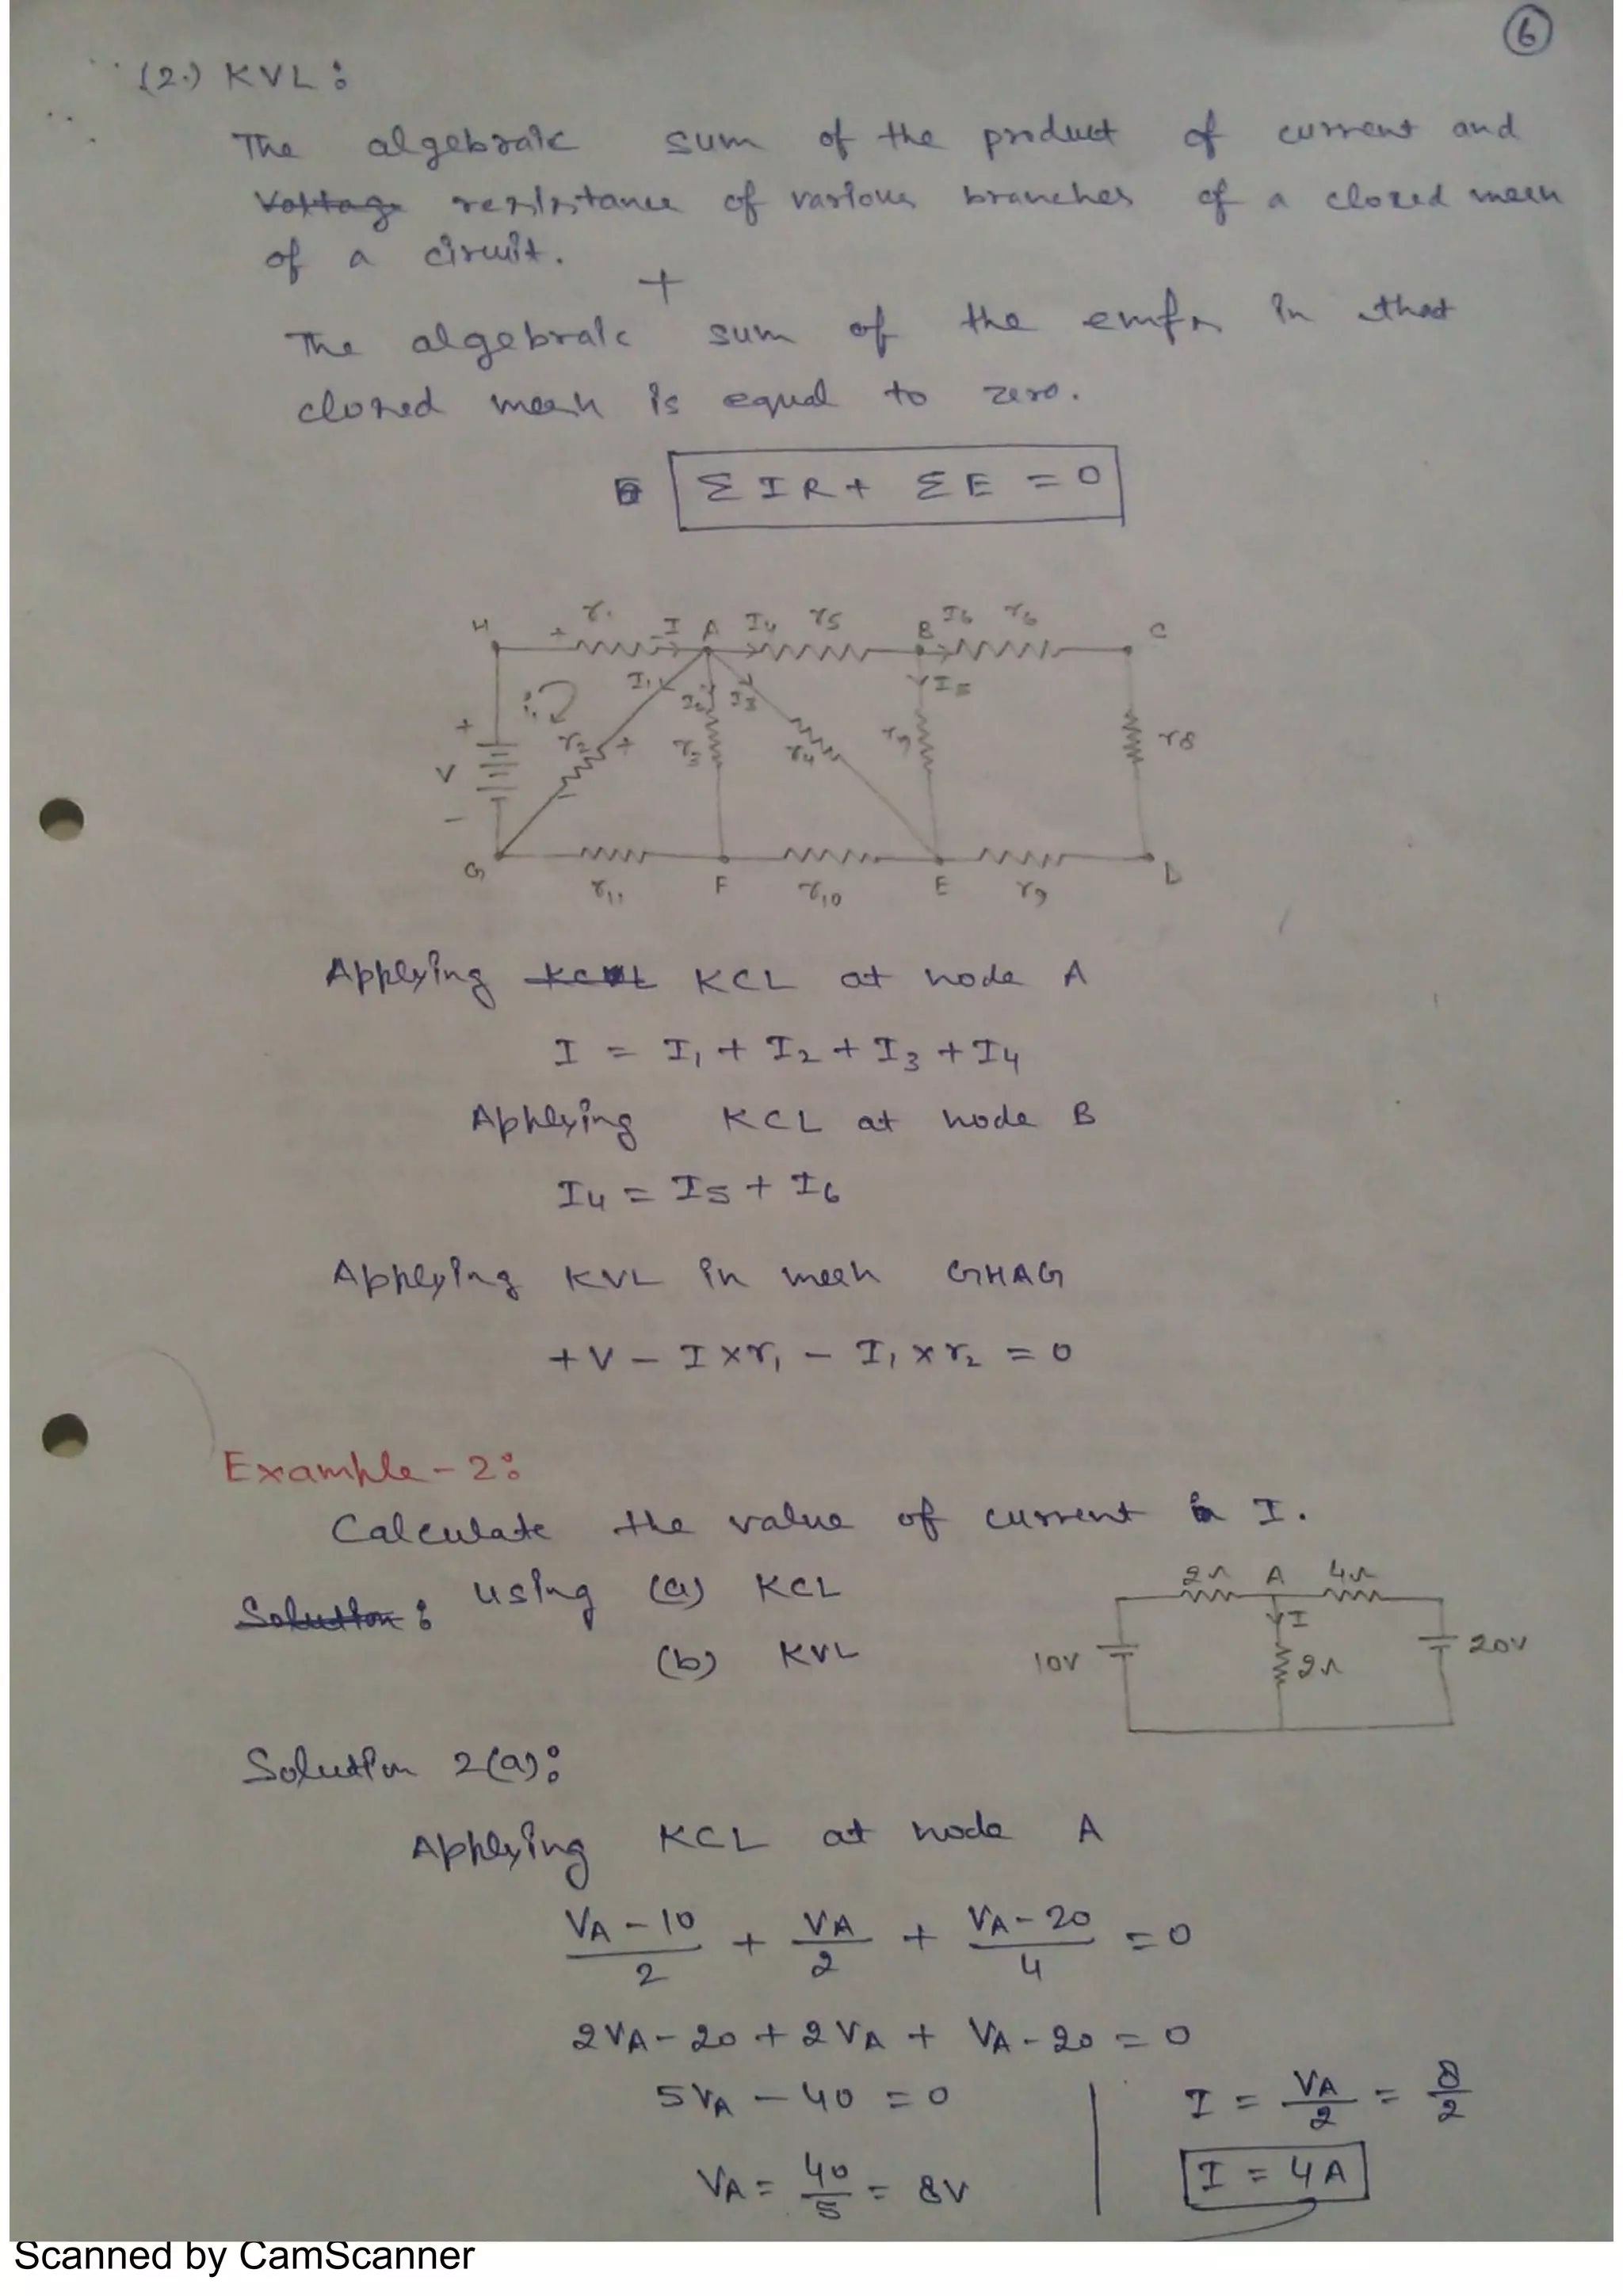 6
(2.) KVL:
The algebraic sum of the product of current and
Voltage resistance of various branches of a closed mesh
of a circuit.
+
The algebraic sum of the emfs in that
closed mesh is equal to zero.
Σ I R + Σ E = 0
H r1 I A I4 r5 B I6 r6 C
+ -
I1 I2 I3 I5
+ V - r2 + - r3 r4 r7 r8
G r11 F r10 E r9 D
Applying KCL at node A
I = I1 + I2 + I3 + I4
Applying KCL at node B
I4 = I5 + I6
Applying KVL in mesh GHAG
+V - I × r1 - I1 × r2 = 0
Example-2:
Calculate the value of current I.
Solution: using (a) KCL
(b) KVL
2Ω A 4Ω
I
10V 2Ω 20V
Solution 2(a):
Applying KCL at node A
VA - 10 / 2 + VA / 2 + VA - 20 / 4 = 0
2VA - 20 + 2VA + VA - 20 = 0
5VA - 40 = 0
I = VA / 2 = 8 / 2
VA = 40 / 5 = 8V
I = 4A
Scanned by CamScanner